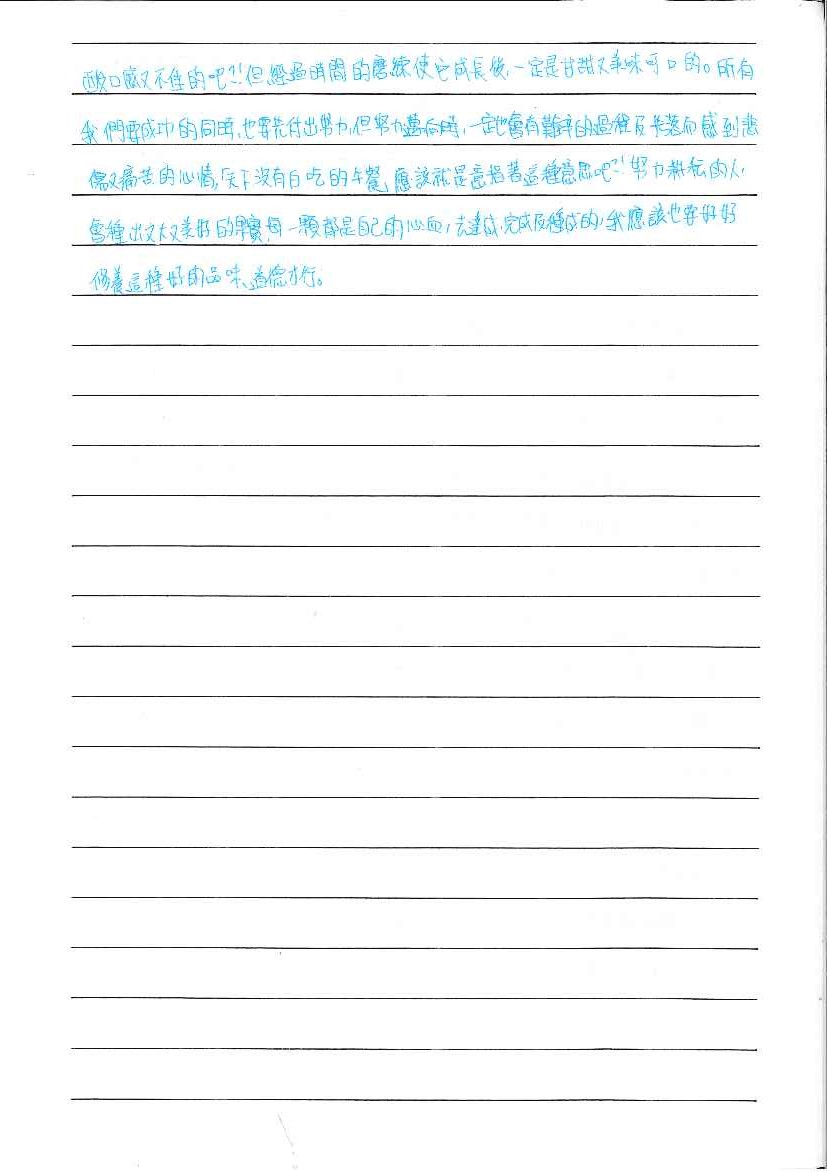 酸口感又不佳的吧?!但,經過時間的磨練使它成長後,一定是甘甜又美味可口的。所有
我們要成功的同時,也要先付出努力,但努力邁向時,一定也會有艱辛的過程及失落而感到悲
傷又痛苦的心情,「天下沒有白吃的午餐」應該就是意指著這種意思吧?!努力耕耘的人,
會種出又大又美好的果實,每一顆都是自己的心血,去達成,完成及種成的,我應該也要好好
修養這種好的品味、道德才行。